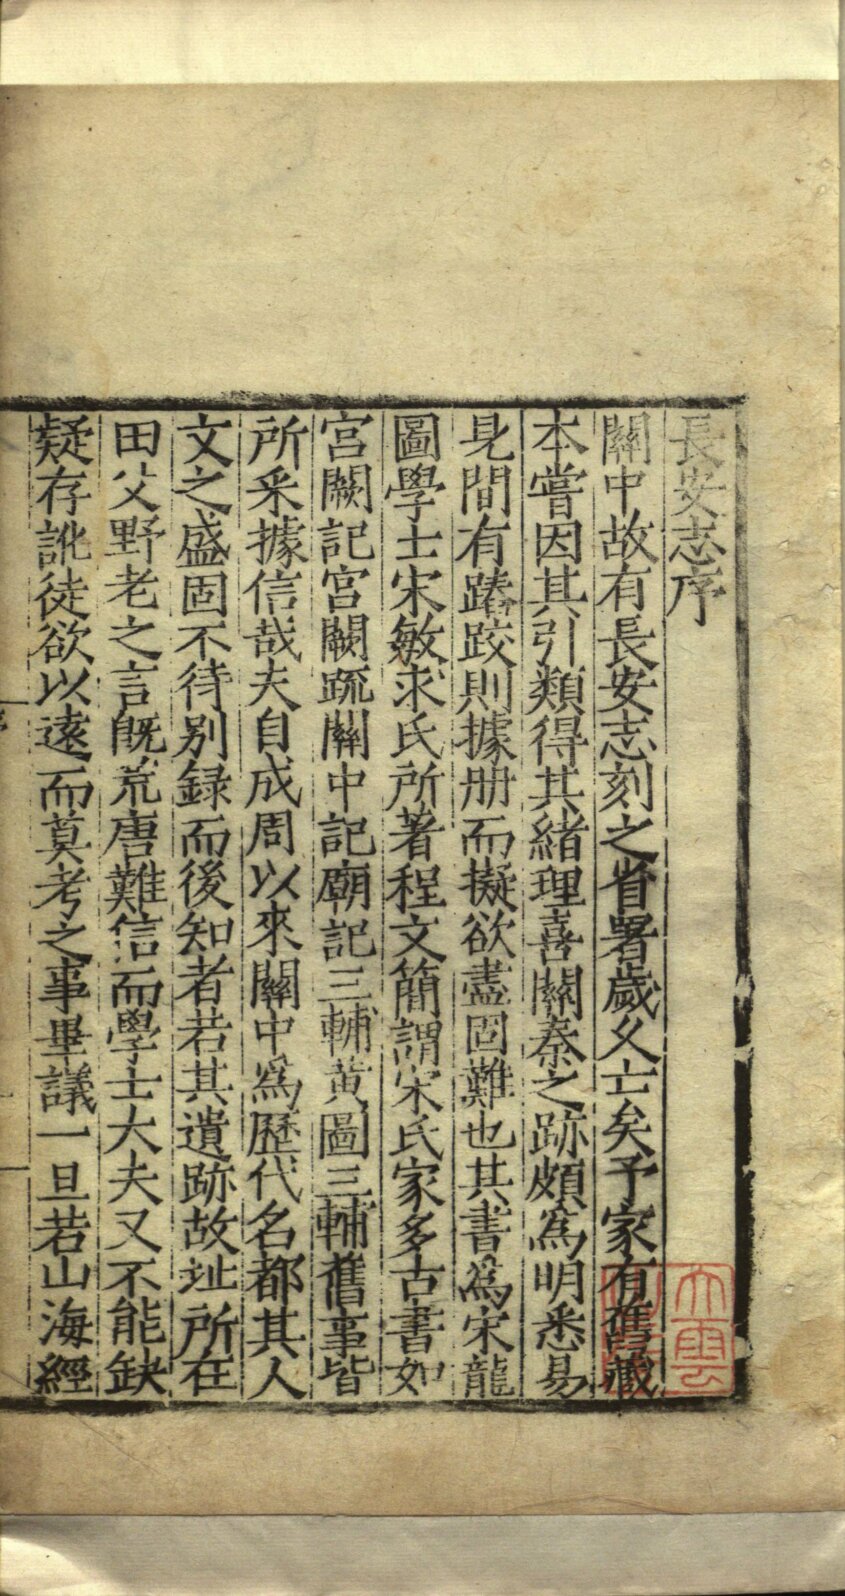 長安志序
關中故有長安志刻之省署歲久亡矣予家有舊藏
本嘗因其引類得其緒理喜關秦之跡頗爲明悉易
見間有踳跤則據册而擬欲盡固難也其書爲宋龍
圖學士宋敏求氏所著程文簡謂宋氏家多古書如
宮闕記宮闕疏關中記廟記三輔黄圖三輔舊事皆
所采據信哉夫自成周以來關中爲歷代名都其人
文之盛固不待别録而後知者若其遺跡故址所在
田父野老之言既荒唐難信而學士大夫又不能缺
疑存訛徒欲以遠而莫考之事畢議一旦若山海經